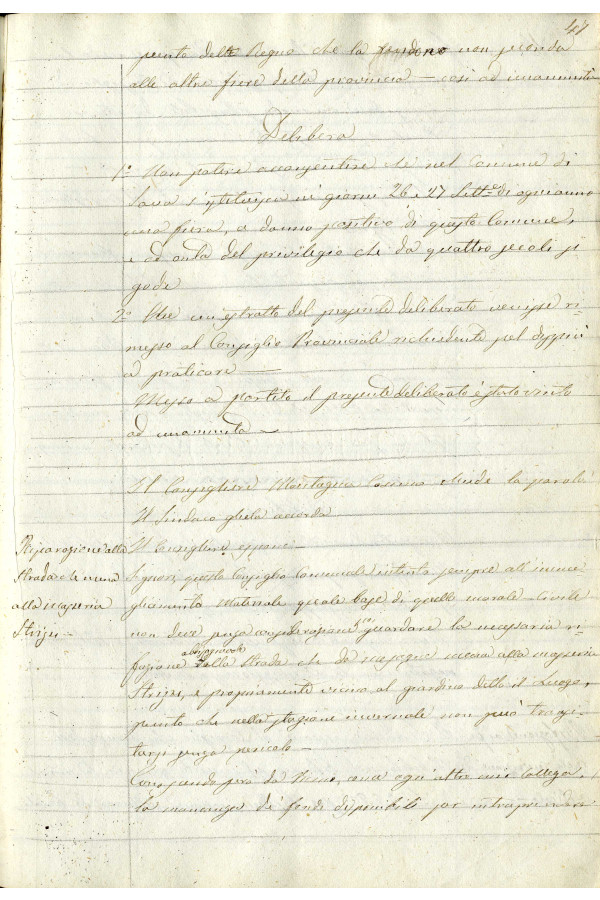 47
punto delle Regno che la rendono non seconda
alle altre fiere della provincia — così ad unanimità
Delibera
1° Non potere acconsentire che nel Comune di
Sava s'istituisca ni giorni 26 e 27 Sett.e di ogni anno
una fiera, a danno positivo di questo Comune,
e ad onta del privilegio che da quattro secoli si
gode
2° Che un estratto del presente deliberato venisse ri-
messo al Consiglio Provinciale richiedente pel dippiù
a praticare —
Messo a partito il presente deliberato è stato vinto
ad unanimità —
Il Consigliere Montagna Cosimo chiede la parola
Il Sindaco gliela accorda
Riparazione alla
strada che mena
alla masseria
Strizzi —
Il Consigliere espone —
Signori, questo Consiglio Comunale intento sempre all'imme-
gliamento Materiale quale base di quello morale-Civile
non deve senza considerazione guardare la necessaria ri-
fazione della strada che da mena alla masseria
Strizzi, e propriamente vicino al giardino detto il Luogo,
punto che nella stagione invernale non può transi-
tarsi senza pericolo —
Conoscendo però da Verno, come ogni altro mio Collega,
la mancanza di fondi disponibili per intraprendere